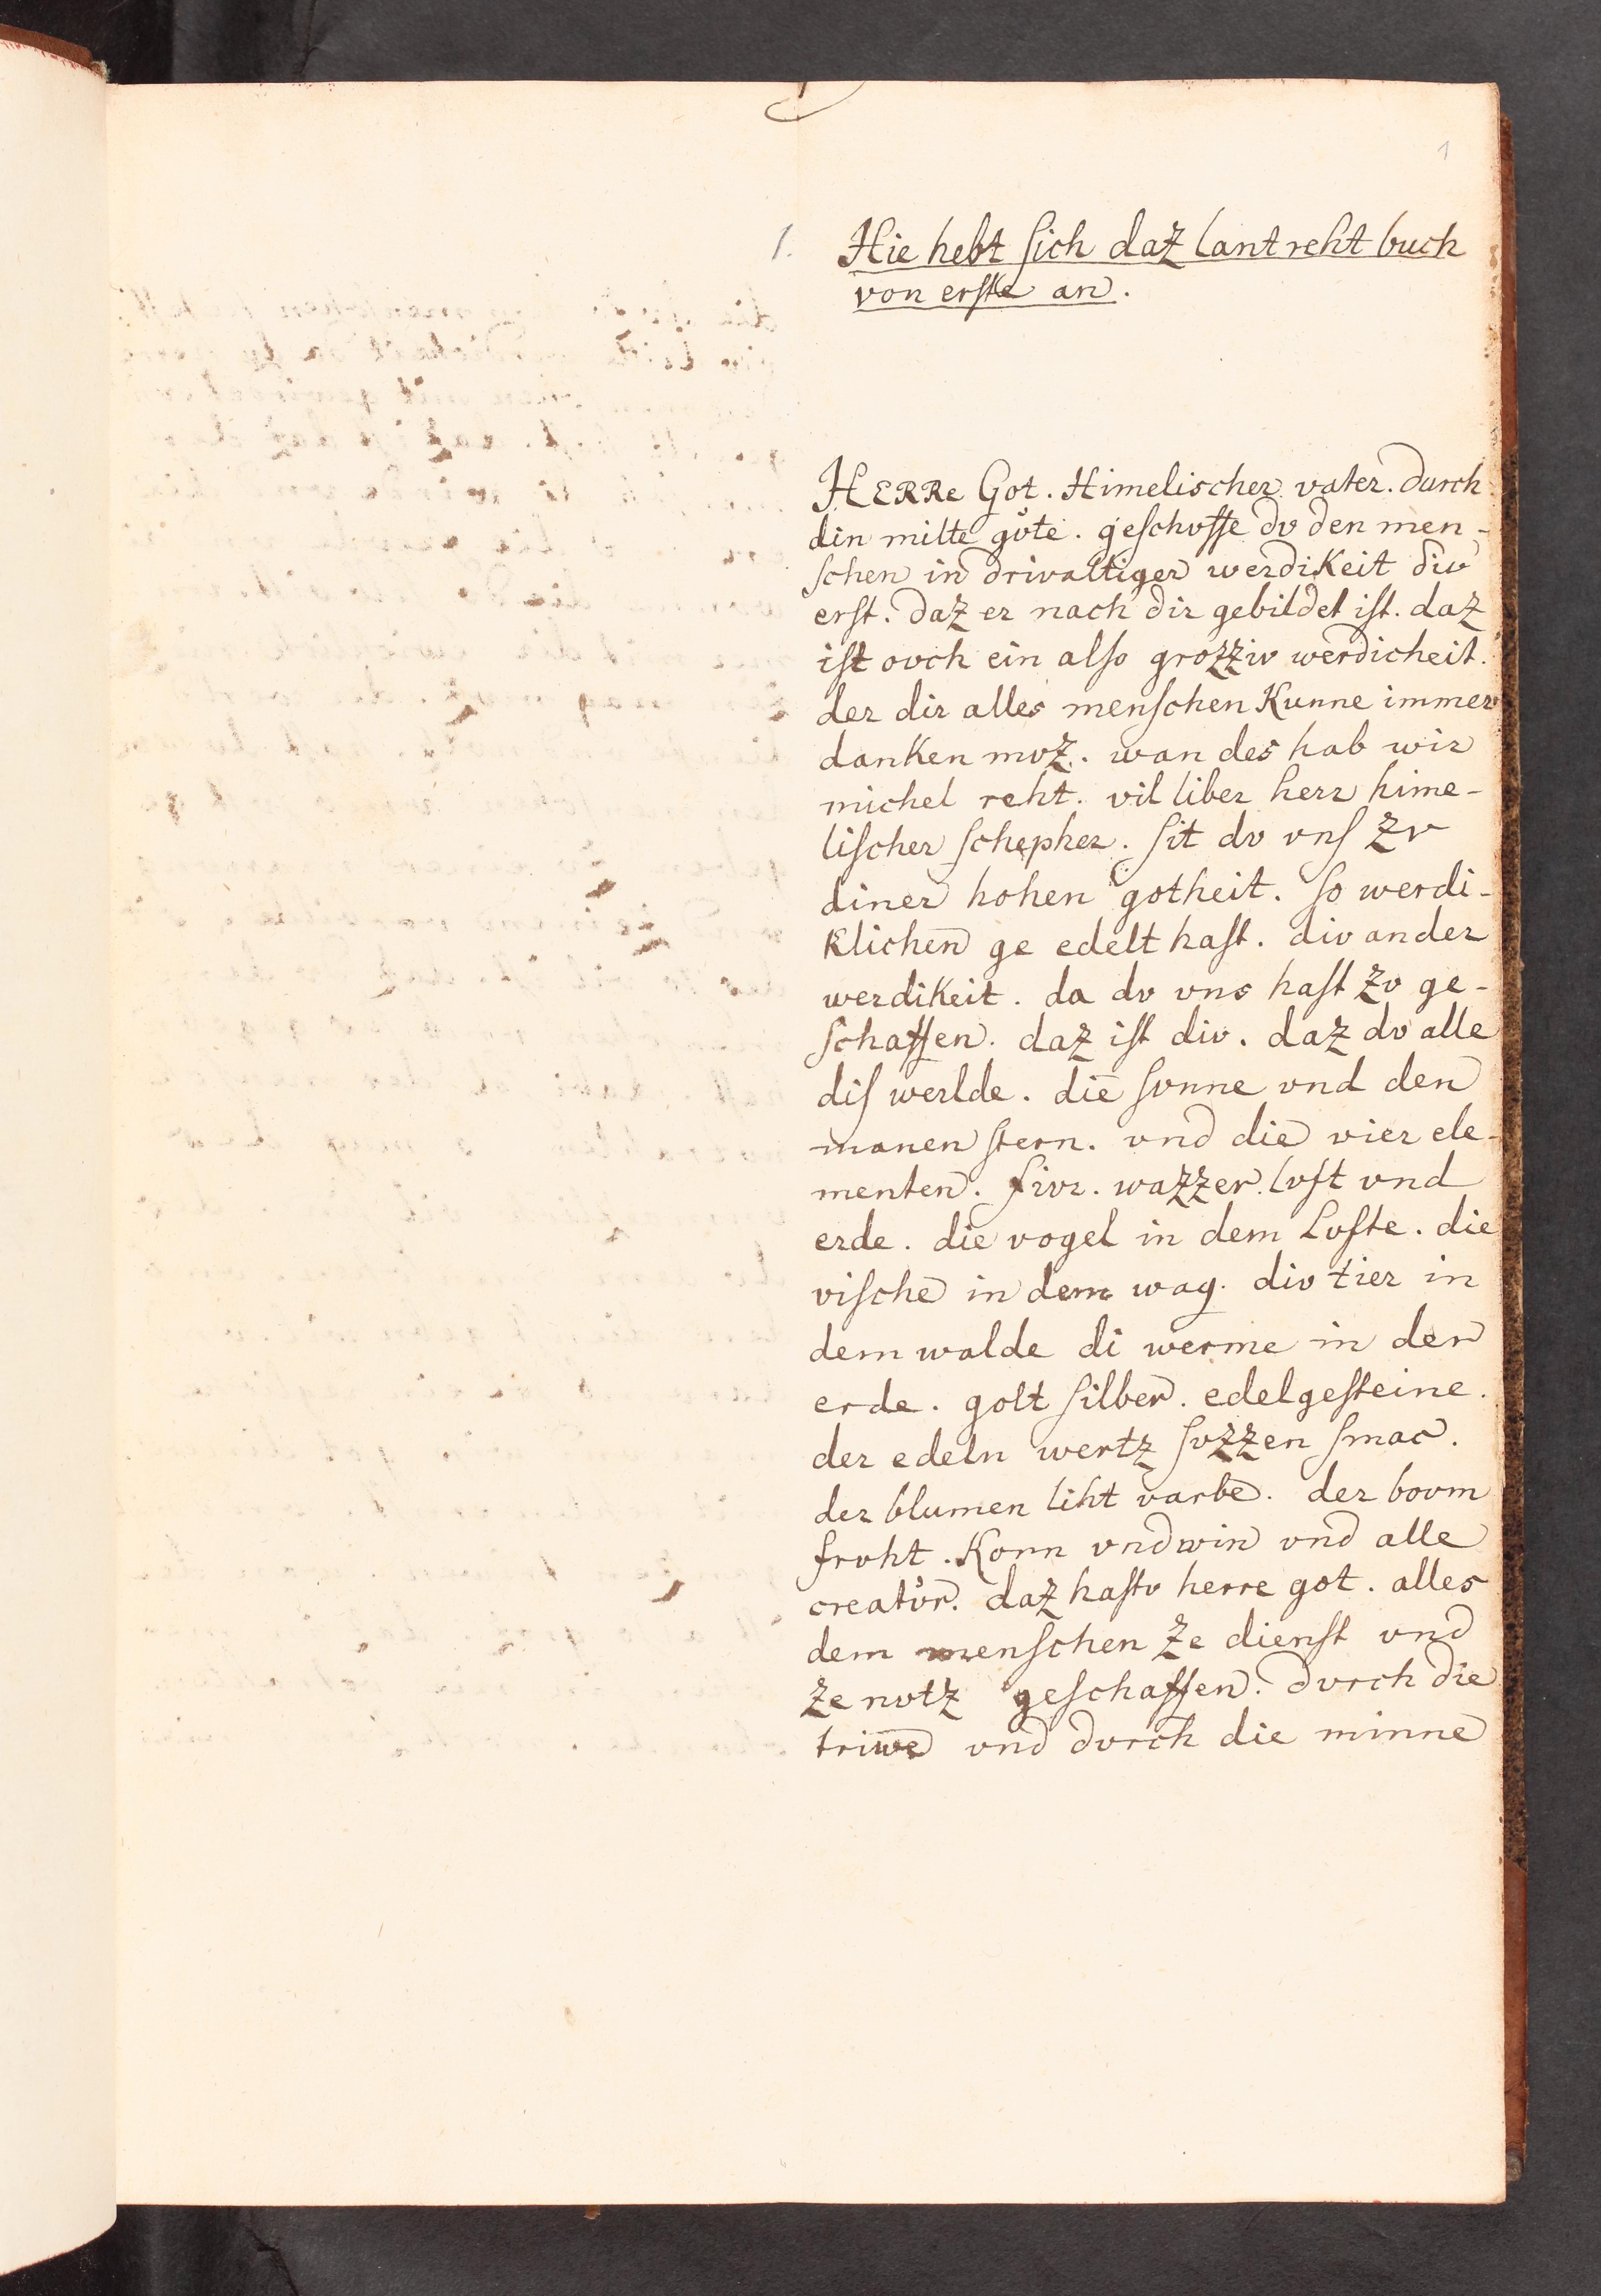 1
1. Hie hebt ſich daz lant reht buch
von erſte an.
HERRe Got. Himelischer vater. durch
din milte gůte. geſchoffe dv den men-
ſchen in drivaltiger werdikeit div
erſt. daz er nach dir gebildet iſt. daz
iſt ovch ein alſo grozziv werdicheit.
der dir alles menſchen Kunne immer
danken mvz. wan des hab wir
michel reht. vil liber herr hime-
liſcher ſchepher. ſit dv vnſ zv
diner hohen gotheit. ſo werdi-
klichen ge edelt haſt. div ander
werdikeit. da dv vns haſt zv ge-
ſchaffen. daz iſt div. daz dv alle
diſ werlde. die ſvnne vnd den
manen ſtern. vnd die vier ele-
menten. fivr. wazzer. lvft vnd
erde. die vogel in dem Lvfte. die
viſche in dem wag. div tier in
dem walde di werme in der
erde. golt ſilber. edelgeſteine.
der edeln wertz ſvzzen ſmac.
der blumen liht varbe. der bovm
frvht. Korn vnd win vnd alle
creatůr. daz haſtv herre got. alles
dem menſchen ze dienſt vnd
ze nvtz geſchaffen. dvrch die
triwe vnd dvrch die minne